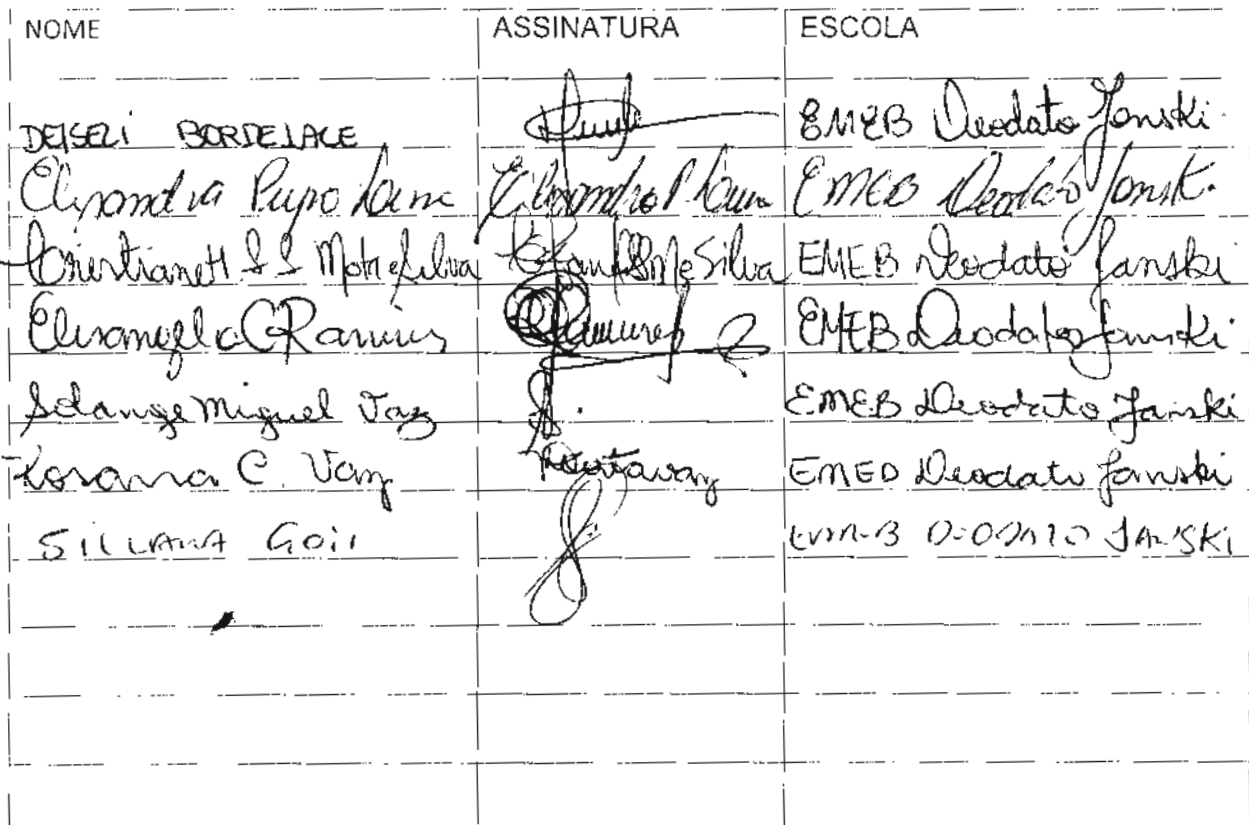 NOME ASSINATURA ESCOLA
DEISELI BORDELACE EMEB Deodato Janski
Elisandra Pupo EMEB Deodato Janski
S S Mota e Silva Silva EMEB Deodato Janski
Elisangela C Ramires Ramires EMEB Deodato Janski
Solange Miguel Vaz EMEB Deodato Janski
Rosana C. Vaz EMEB Deodato Janski
SILVANA GOIS EMEB DEODATO JANSKI